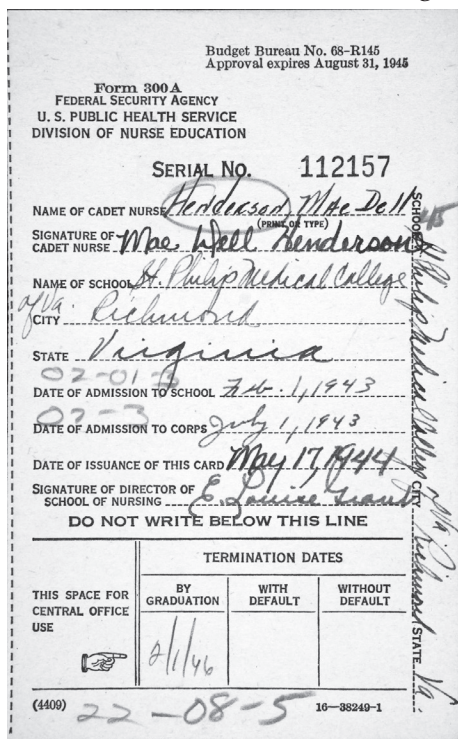 Budget Bureau No. 68-R145
Approval expires August 31, 1945
Form 300A
FEDERAL SECURITY AGENCY
U. S. PUBLIC HEALTH SERVICE
DIVISION OF NURSE EDUCATION
SERIAL NO. 112157
NAME OF CADET NURSE Henderson, Mae Dell
(PRINT OR TYPE)
SIGNATURE OF CADET NURSE Mae Dell Henderson
NAME OF SCHOOL St. Philip Medical College
of Va.
CITY Richmond
STATE Virginia
02-01-3
DATE OF ADMISSION TO SCHOOL Feb. 1, 1943
07-3
DATE OF ADMISSION TO CORPS July 1, 1943
DATE OF ISSUANCE OF THIS CARD May 17, 1944
SIGNATURE OF DIRECTOR OF SCHOOL OF NURSING E. Louise Grant
DO NOT WRITE BELOW THIS LINE
THIS SPACE FOR CENTRAL OFFICE USE
TERMINATION DATES
BY GRADUATION
WITH DEFAULT
WITHOUT DEFAULT
2/1/46
(4409)
22-08-5
16—38249-1
SCHOOL St. Philip Medical College of Va. CITY Richmond STATE Va.